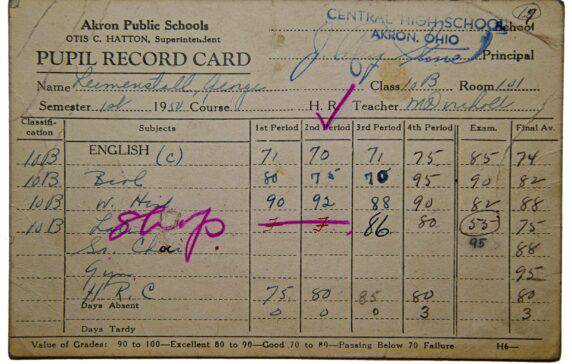 19
Akron Public Schools CENTRAL HIGH SCHOOL School
OTIS C. HATTON, Superintendent AKRON, OHIO
PUPIL RECORD CARD Principal
Name Reimenstall, George Class 10B Room 101
Semester 1st 1950 Course H. R. Teacher
Classifi-cation Subjects 1st Period 2nd Period 3rd Period 4th Period Exam. Final Av.
10B ENGLISH (C) 71 70 71 75 85 74
10B Biol 80 75 75 95 90 82
10B W. Hist 90 92 88 90 82 88
10B shop 7 7 86 80 53 75
95
Sr. Choir 88
Gym 95
H R C 75 80 85 80 80
Days Absent 0 0 0 3 3
Days Tardy
Value of Grades: 90 to 100—Excellent 80 to 90—Good 70 to 80—Passing Below 70 Failure H6—